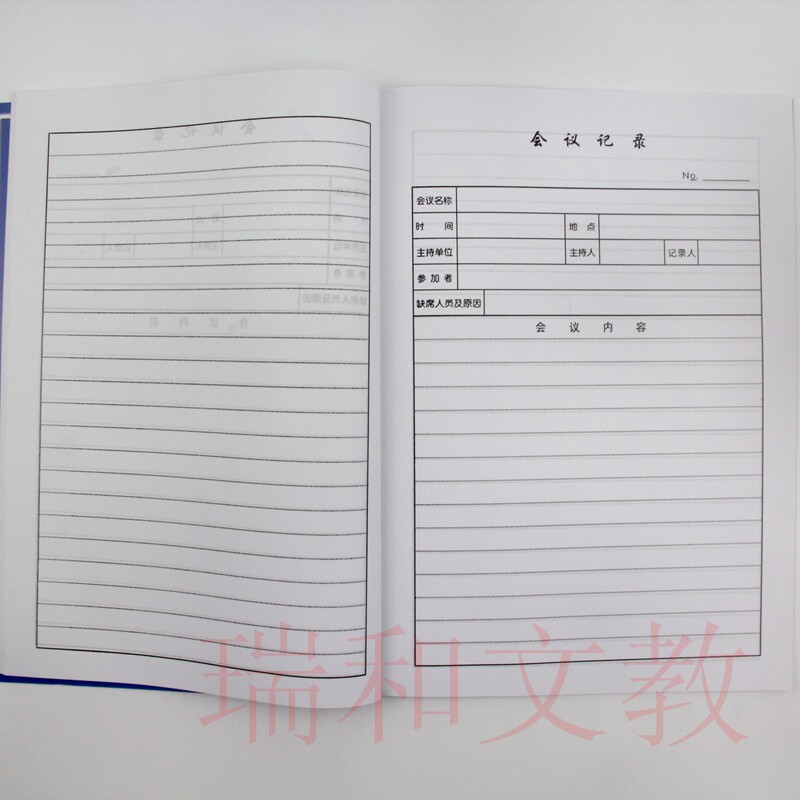 会议记录
No.
会议名称
时间 地点
主持单位 主持人 记录人
参加者
缺席人员及原因
会议内容
瑞和文教